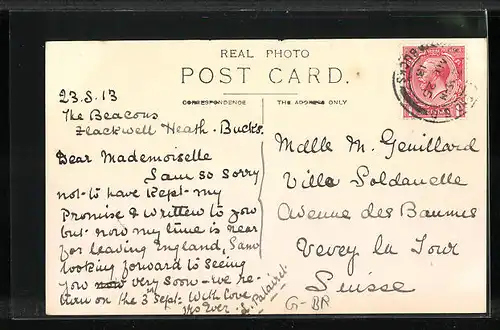 REAL PHOTO
POST CARD.
CORRESPONDENCE
THE ADDRESS ONLY
23.8.13
The Beacons
Flackwell Heath. Bucks.
Dear Mademoiselle
I am so sorry
not to have kept my
promise & written to you
but now my time is near
for leaving England, I am
looking forward to seeing
you now very soon - we re-
turn on the 3rd Sept: With love
Yrs Ever. L. Palairet.
Mdlle M. Genillard
Villa Soldanelle
Avenue des Baumes
Vevey la Tour
Suisse
G-BR